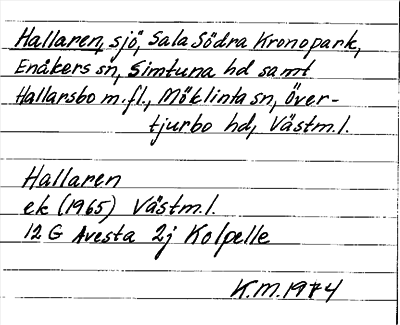 Hallaren, sjö, Sala Södra Kronopark,
Enåkers sn, Simtuna hd samt
Hallarsbo m.fl., Möklinta sn, Över-
tjurbo hd, Västm.l.
Hallaren
ek (1965) Västm.l.
12 G Avesta 2j Kolpelle
K.M. 1974